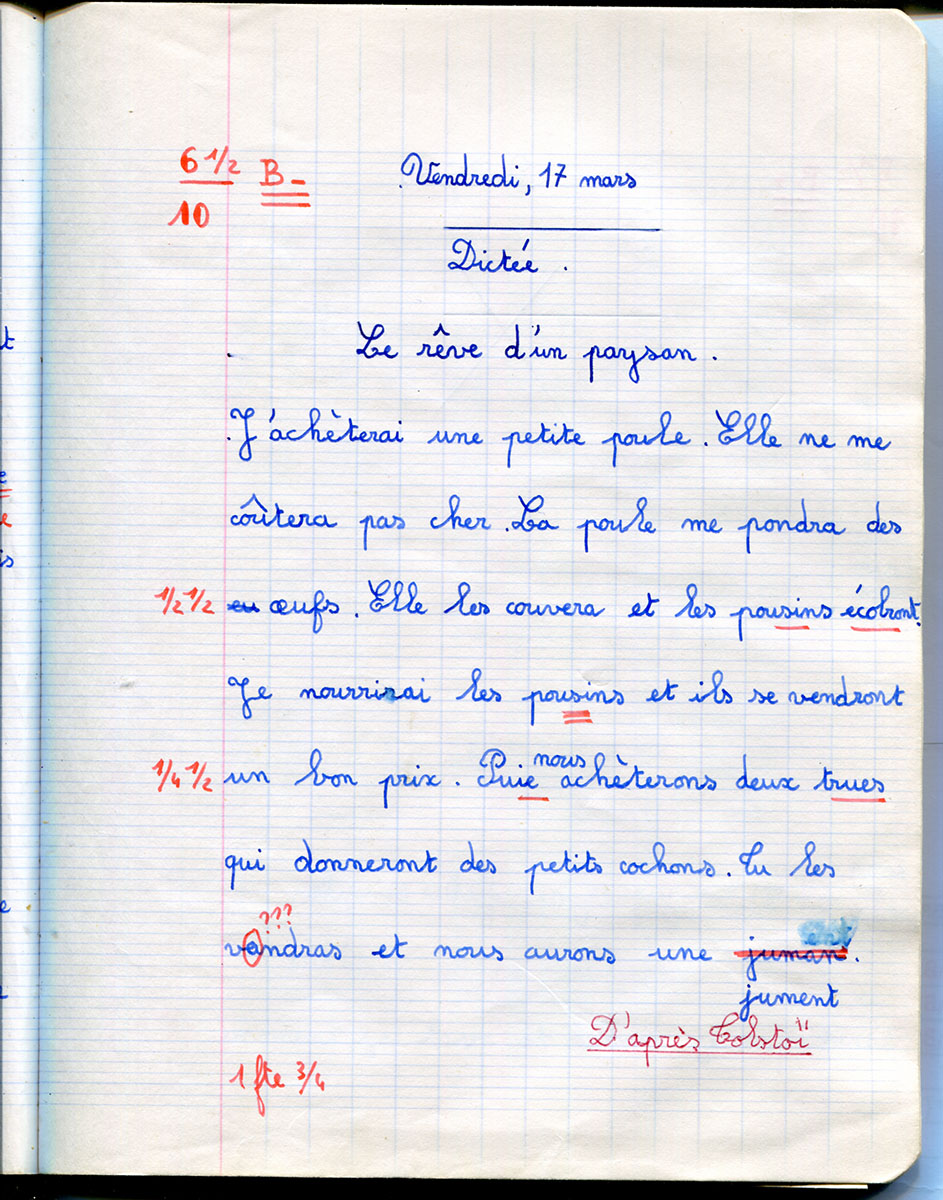 6 1/2 B- Vendredi, 17 mars
10
Dictée.
Le rêve d'un paysan.
J'achèterai une petite poule. Elle ne me
coûtera pas cher. La poule me pondra des
1/2 1/2 eu œufs. Elle les couvera et les pousins écolront.
Je nourrirai les pousins et ils se vendront
un bon prix. Puie nous achèterons deux trues
1/4 1/2
qui donneront des petits cochons. Tu les
???
vandras et nous aurons une juman.
jument
D'après Tolstoï
1 fte 3/4